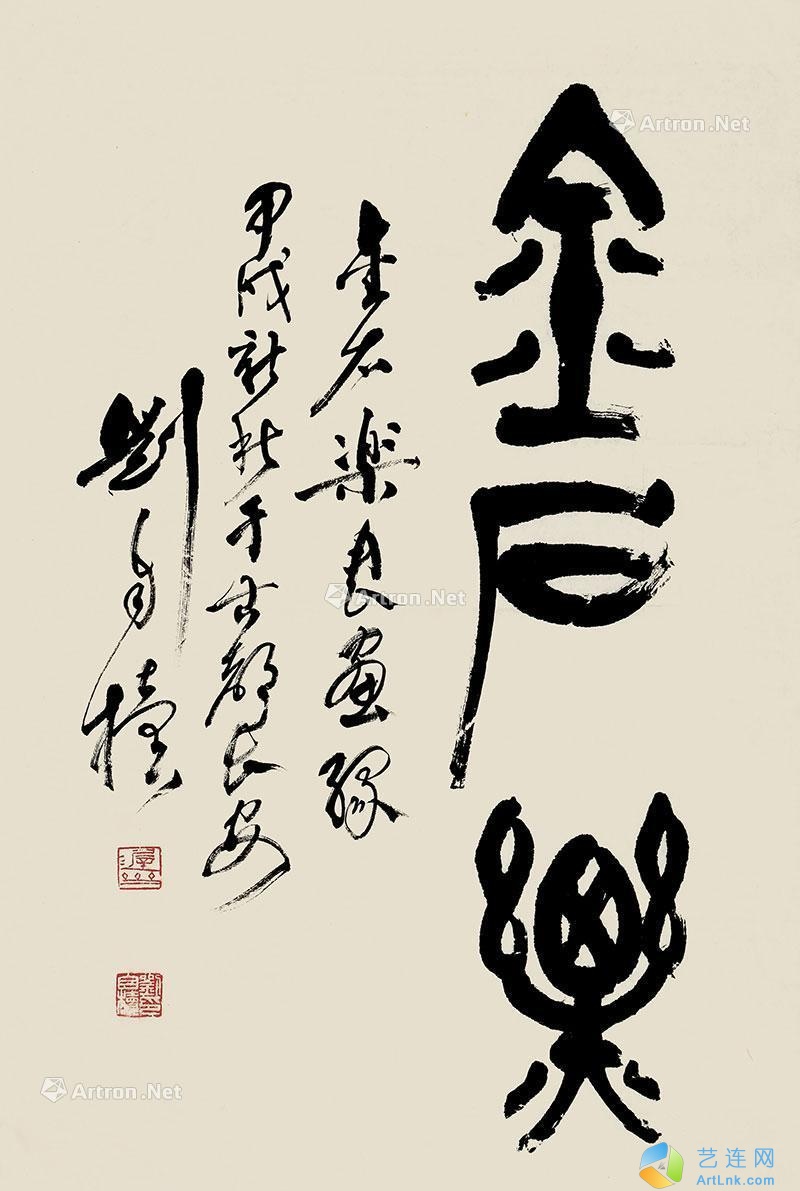 金石樂
金石樂書畫緣
甲戌新秋于古都長安
劉自櫝
Artron.Net
Artron.Net
Artron.Net
艺连网
ArtLnk.com